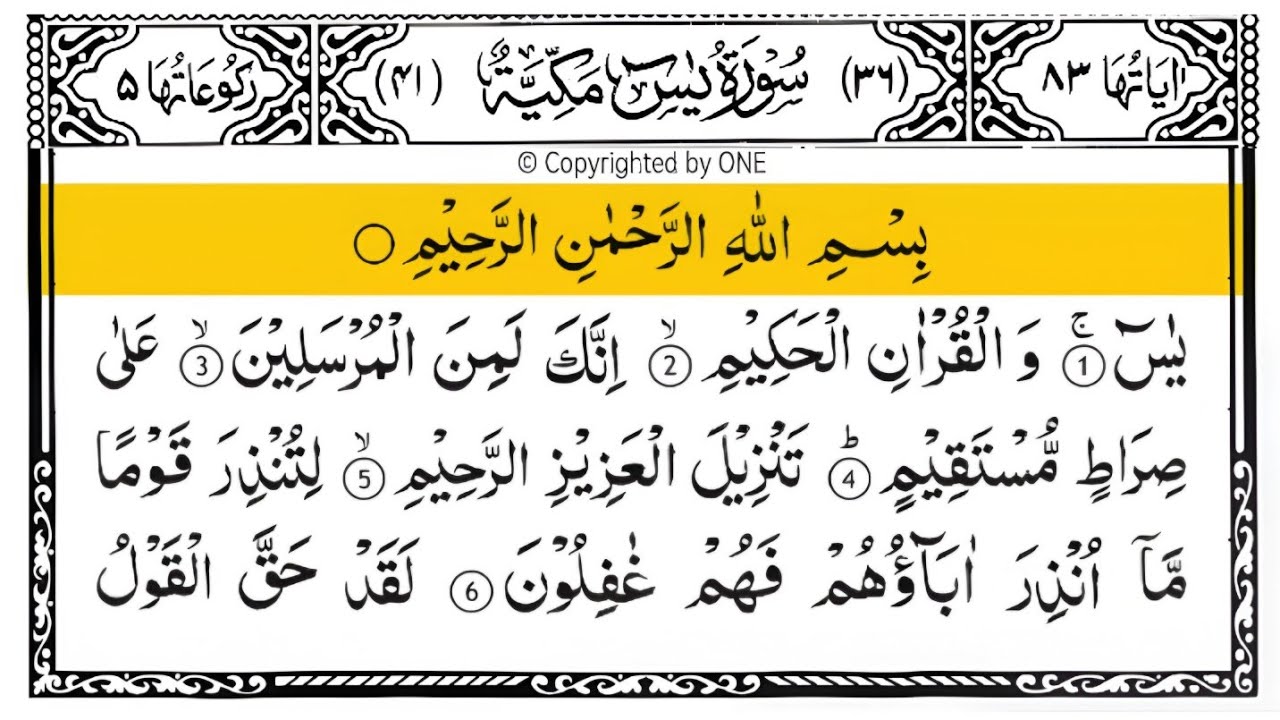 اٰیَاتُهَا ۸۳ (۳۶) سُوْرَةُ یٰسٓ مَكِّیَّةٌ (۴۱) رُكُوْعَاتُهَا ۵
© Copyrighted by ONE
بِسْمِ اللّٰهِ الرَّحْمٰنِ الرَّحِیْمِ ○
یٰسٓ ۚ ① وَ الْقُرْاٰنِ الْحَكِیْمِ ۙ ② اِنَّكَ لَمِنَ الْمُرْسَلِیْنَ ۙ ③ عَلٰى
صِرَاطٍ مُّسْتَقِیْمٍ ؕ ④ تَنْزِیْلَ الْعَزِیْزِ الرَّحِیْمِ ۙ ⑤ لِتُنْذِرَ قَوْمًا
مَّاۤ اُنْذِرَ اٰبَآؤُهُمْ فَهُمْ غٰفِلُوْنَ ⑥ لَقَدْ حَقَّ الْقَوْلُ